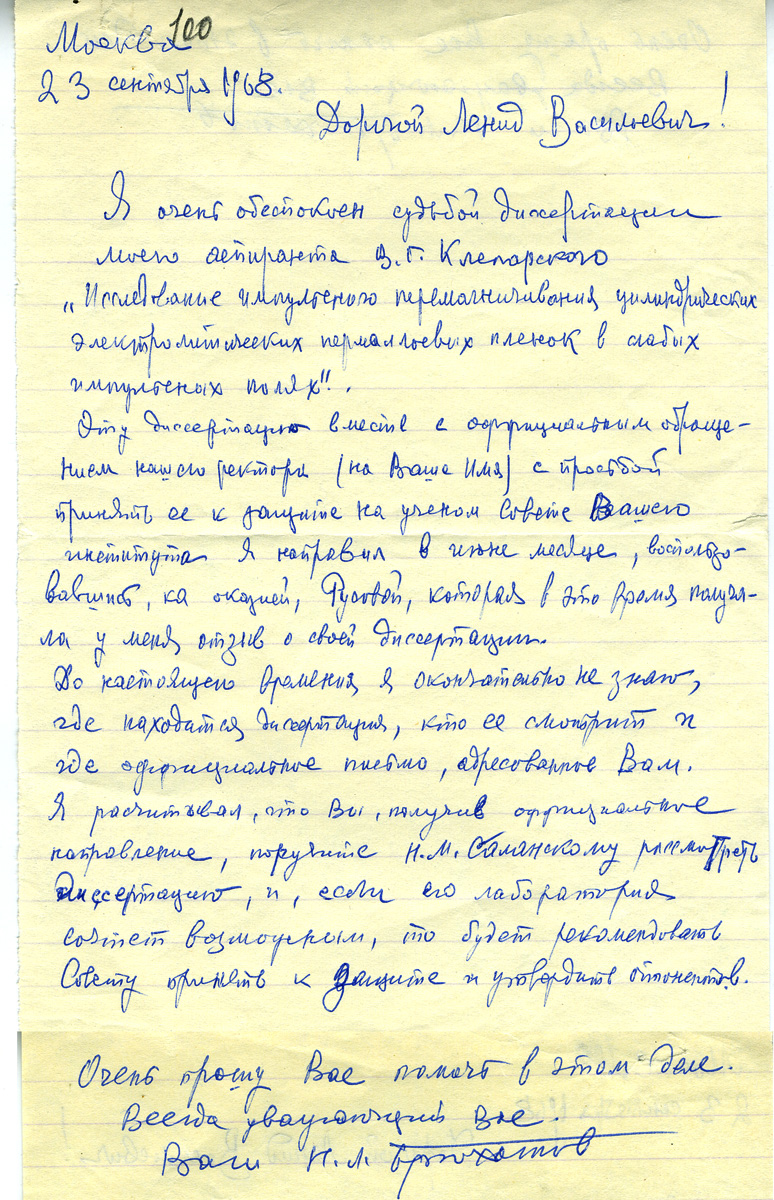 Москва 100
23 сентября 1968.
Дорогой Леонид Васильевич!
Я очень обеспокоен судьбой диссертации
моего аспиранта В.Г. Клепарского
„Исследование импульсного перемагничивания цилиндрических
электролитических пермаллоевых пленок в слабых
импульсных полях".
Эту диссертацию вместе с оффициальным обраще-
нием нашего ректора (на Ваше Имя) с просьбой
принять ее к защите на ученом Совете Вашего
института я направил в июне месяце, воспользо-
вавшись, ка оказией, Русовой, которая в это время получа-
ла у меня отзыв о своей диссертации.
До настоящего времени я окончательно не знаю,
где находится диссертация, кто ее смотрит и
где оффициальное письмо, адресованное Вам.
Я расчитывал, что Вы, получив оффициальное
направление, поручите Н.М. Саланскому рассмотреть
диссертацию, и, если его лаборатория
сочтет возможным, то будет рекомендовать
Совету принять к защите и утвердить оппонентов.
Очень прошу Вас помочь в этом деле.
Всегда уважающий Вас
Ваш Н.Л. Брюхатов